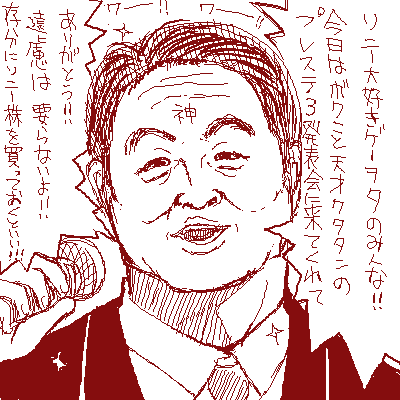 ソニー大好きゲーヲタのみんな!!
今日はボクこと天才クタタンの
プレステ3発表会に来てくれて
ワー!!
ワー!!
神
ありがとう!!
遠慮は要らないよ!!
存分にソニー株を買っておくれい!!!